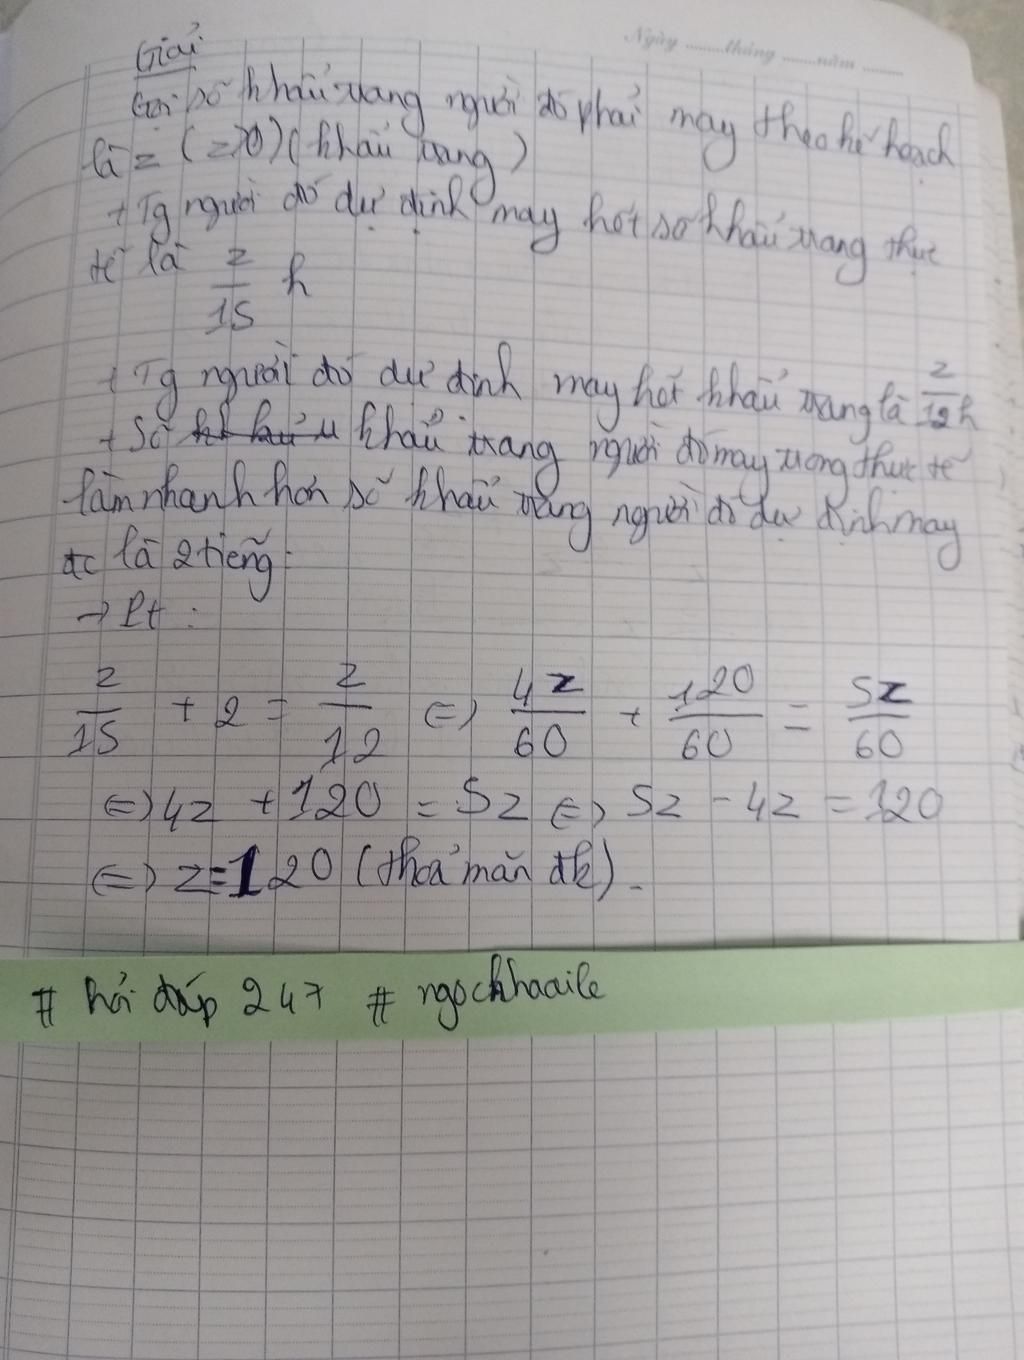 Ngày ........tháng .......năm ........
Giải
Gọi số khẩu trang người đó phải may theo kế hoạch
là z (z>0) (khẩu trang)
+ Tg người đó dự định may hết số khẩu trang thực
tế là z/15 h
+ Tg người đó dự định may hết khẩu trang là z/12 h
+ Số khẩu trang người đó may trong thực tế
làm nhanh hơn số khẩu trang người đó dự định may
đc là 2 tiếng.
→ Pt :
z/15 + 2 = z/12 ⇔ 4z/60 + 120/60 = 5z/60
⇔ 4z + 120 = 5z ⇔ 5z - 4z = 120
⇔ z = 120 (thoả mãn đk).
# hỏi đáp 247 # ngockhaaile